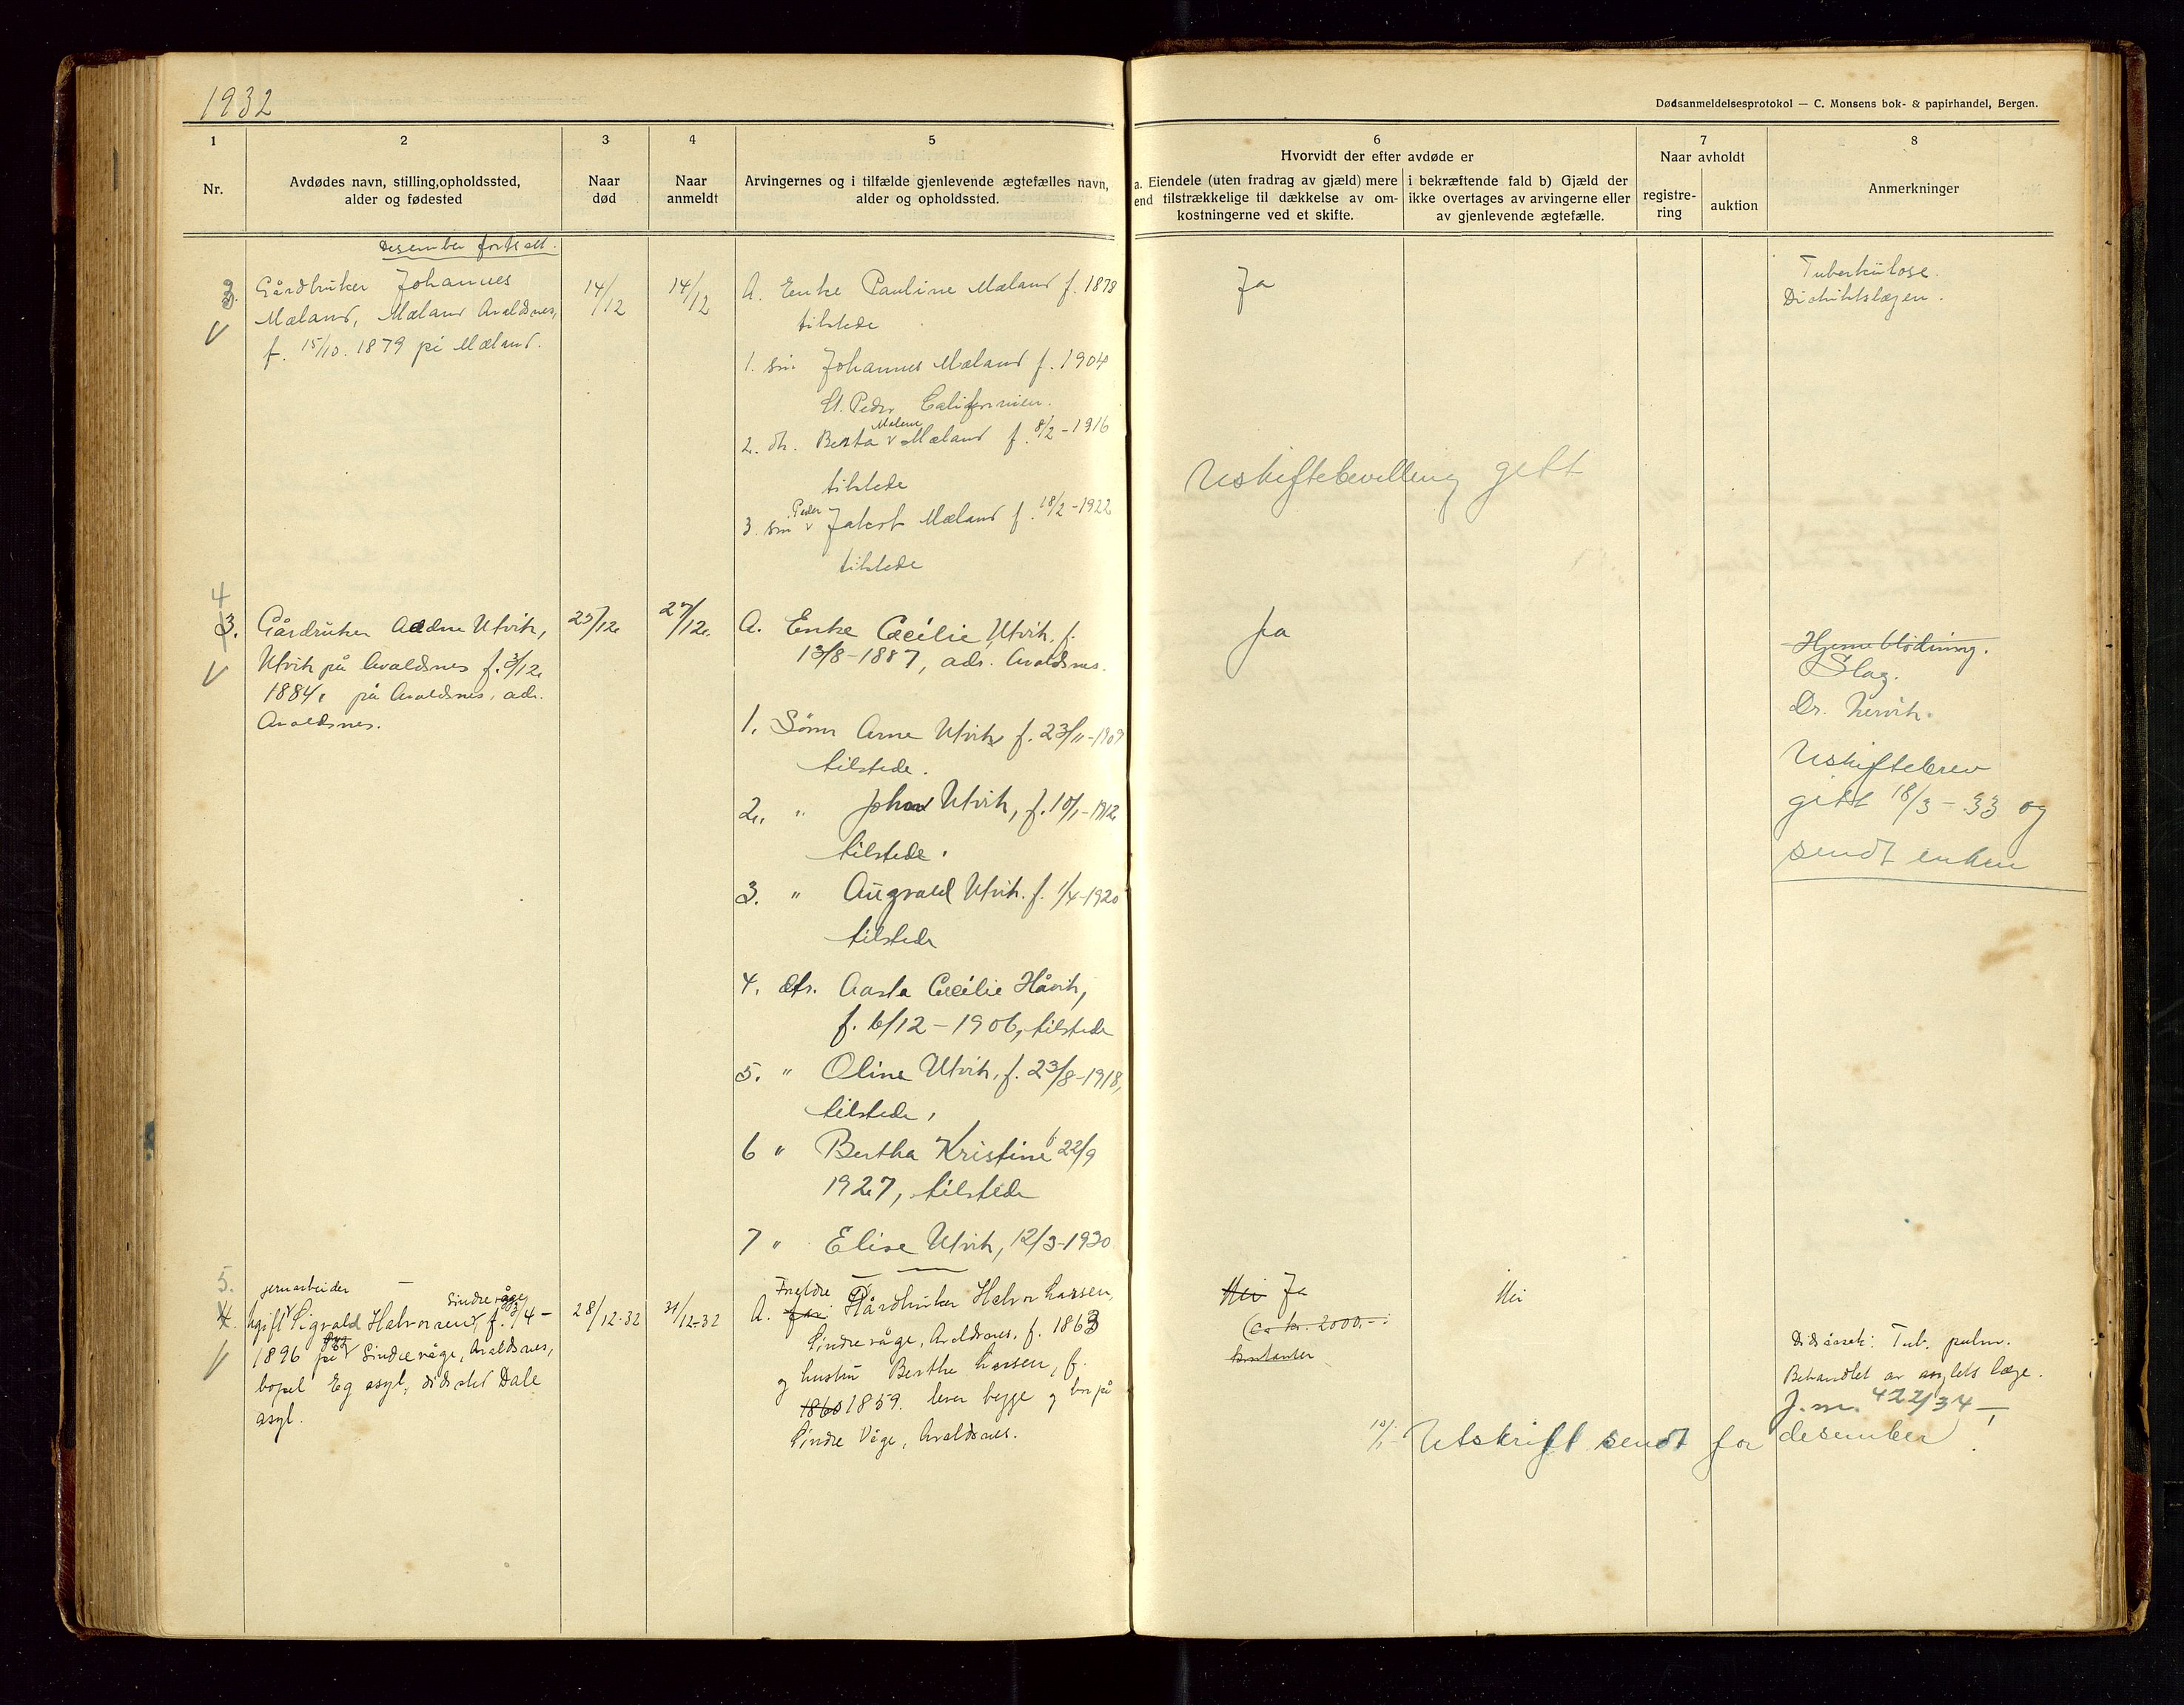 1932
Dødsanmeldelsesprotokol — C. Monsens bok- & papirhandel, Bergen.
1
2
3
4
5
6
7
8
Nr.
Avdødes navn, stilling,opholdssted,
alder og fødested
Naar
død
Naar
anmeldt
Arvingernes og i tilfælde gjenlevende ægtefælles navn,
alder og opholdssted.
Hvorvidt der efter avdøde er
a. Eiendele (uten fradrag av gjæld) mere
end tilstrækkelige til dækkelse av om-
kostningerne ved et skifte.
i bekræftende fald b) Gjæld der
ikke overtages av arvingerne eller
av gjenlevende ægtefælle.
Naar avholdt
registre-
ring
auktion
Anmerkninger
Desember fortsatt.
3.
Gårdbruker Johannes
Mæland, Mæland Avaldsnes,
f. 15/10. 1879 på Mæland.
14/12
14/12
A. Enke Pauline Mæland f. 1878
tilstede
1. søn Johannes Mæland f. 1904
St. Pedro Californien.
2. dtr. Berta Malene Mæland f. 8/2-1916
tilstede
3. søn Peder Jakob Mæland f. 18/2-1922
tilstede
Ja
Uskiftebevilling gitt
Tuberkulose.
Distriktslægen.
4
3.
Gårdbruker Utvik,
Utvik på Avaldsnes f. 3/12
1884, på Avaldsnes, adr.
Avaldsnes.
25/12
27/12.
A. Enke Cecilie Utvik, f.
13/8-1887, adr. Avaldsnes.
1. Sønn Arne Utvik f. 23/11-1909
tilstede.
2. " Johan Utvik, f. 10/1-1912
tilstede.
3. " Augvald Utvik. f. 1/4-1920
tilstede
4. dtr. Aasta Cecilie Håvik,
f. 6/12-1906, tilstede
5. " Oline Utvik, f. 23/8-1918,
tilstede,
6 " Bertha Kristine f 22/9
1927, tilstede
7 " Elise Utvik, 12/3-1930
Ja
Hjerneblødning.
Slag.
Dr.
Uskiftebrev
gitt 18/3-33 og
sendt enken
5.
4.
jernarbeider
Ugift Sigvald Halvorsen, f. 3/4-
1896 på Søndre våge, Avaldsnes,
bopel Eg asyl, dødssted Dale
asyl.
28/12-32
31/12-32
Foreldre
A. far: Gårdbruker Halvor Larsen,
Søndre våge, Avaldsnes. f. 1863
og hustru Berthe Larsen, f.
1860 1859. lever begge og bor på
Søndre Våge, Avaldsnes.
Nei Ja
(ca kr. 2000,-
kontanter
Nei
Dødsårsak: Tub. pulm.
Behandlet av asylets læge.
J.nr. 422/34
10/1- Utskrift sendt for desember.